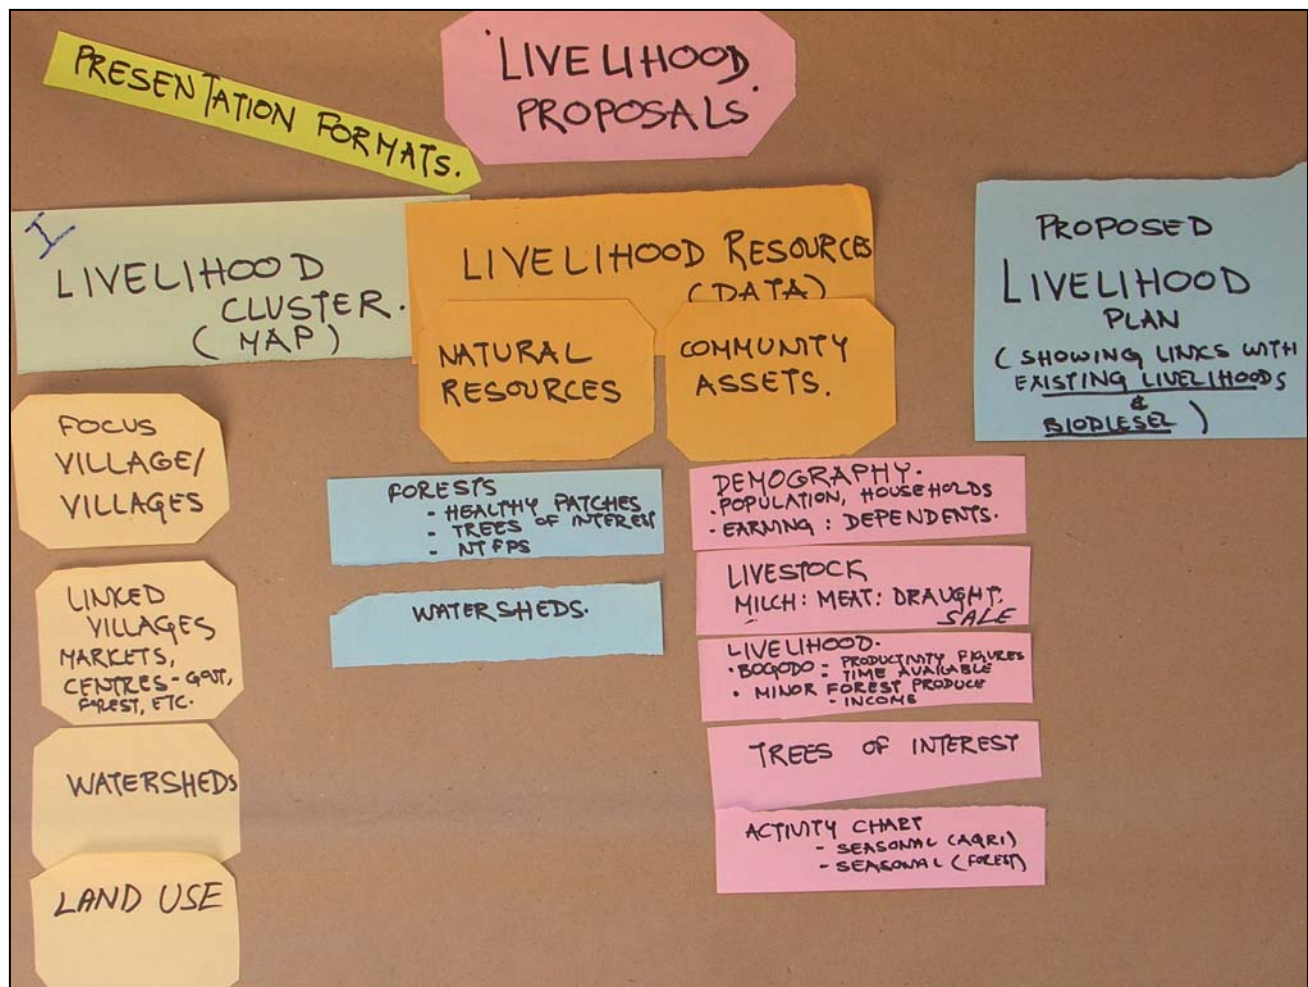 PRESENTATION FORMATS.
'LIVELIHOOD
PROPOSALS'
I
LIVELIHOOD
CLUSTER.
(MAP)
LIVELIHOOD RESOURCES
(DATA)
NATURAL
RESOURCES
COMMUNITY
ASSETS.
PROPOSED
LIVELIHOOD
PLAN
(SHOWING LINKS WITH
EXISTING LIVELIHOODS
&
BIODIESEL)
FOCUS
VILLAGE/
VILLAGES
LINKED
VILLAGES
MARKETS,
CENTRES - GOVT,
FOREST, ETC.
WATERSHEDS
LAND USE
FORESTS
- HEALTHY PATCHES
- TREES OF INTEREST
- NTFPS
WATERSHEDS.
DEMOGRAPHY.
. POPULATION, HOUSEHOLDS
- EARNING : DEPENDENTS.
LIVESTOCK
MILCH : MEAT : DRAUGHT.
SALE
LIVELIHOOD.
• BOGODO - PRODUCTIVITY FIGURES
- TIME AVAILABLE
• MINOR FOREST PRODUCE
- INCOME
TREES OF INTEREST
ACTIVITY CHART
- SEASONAL (AGRI)
- SEASONAL (FOREST)